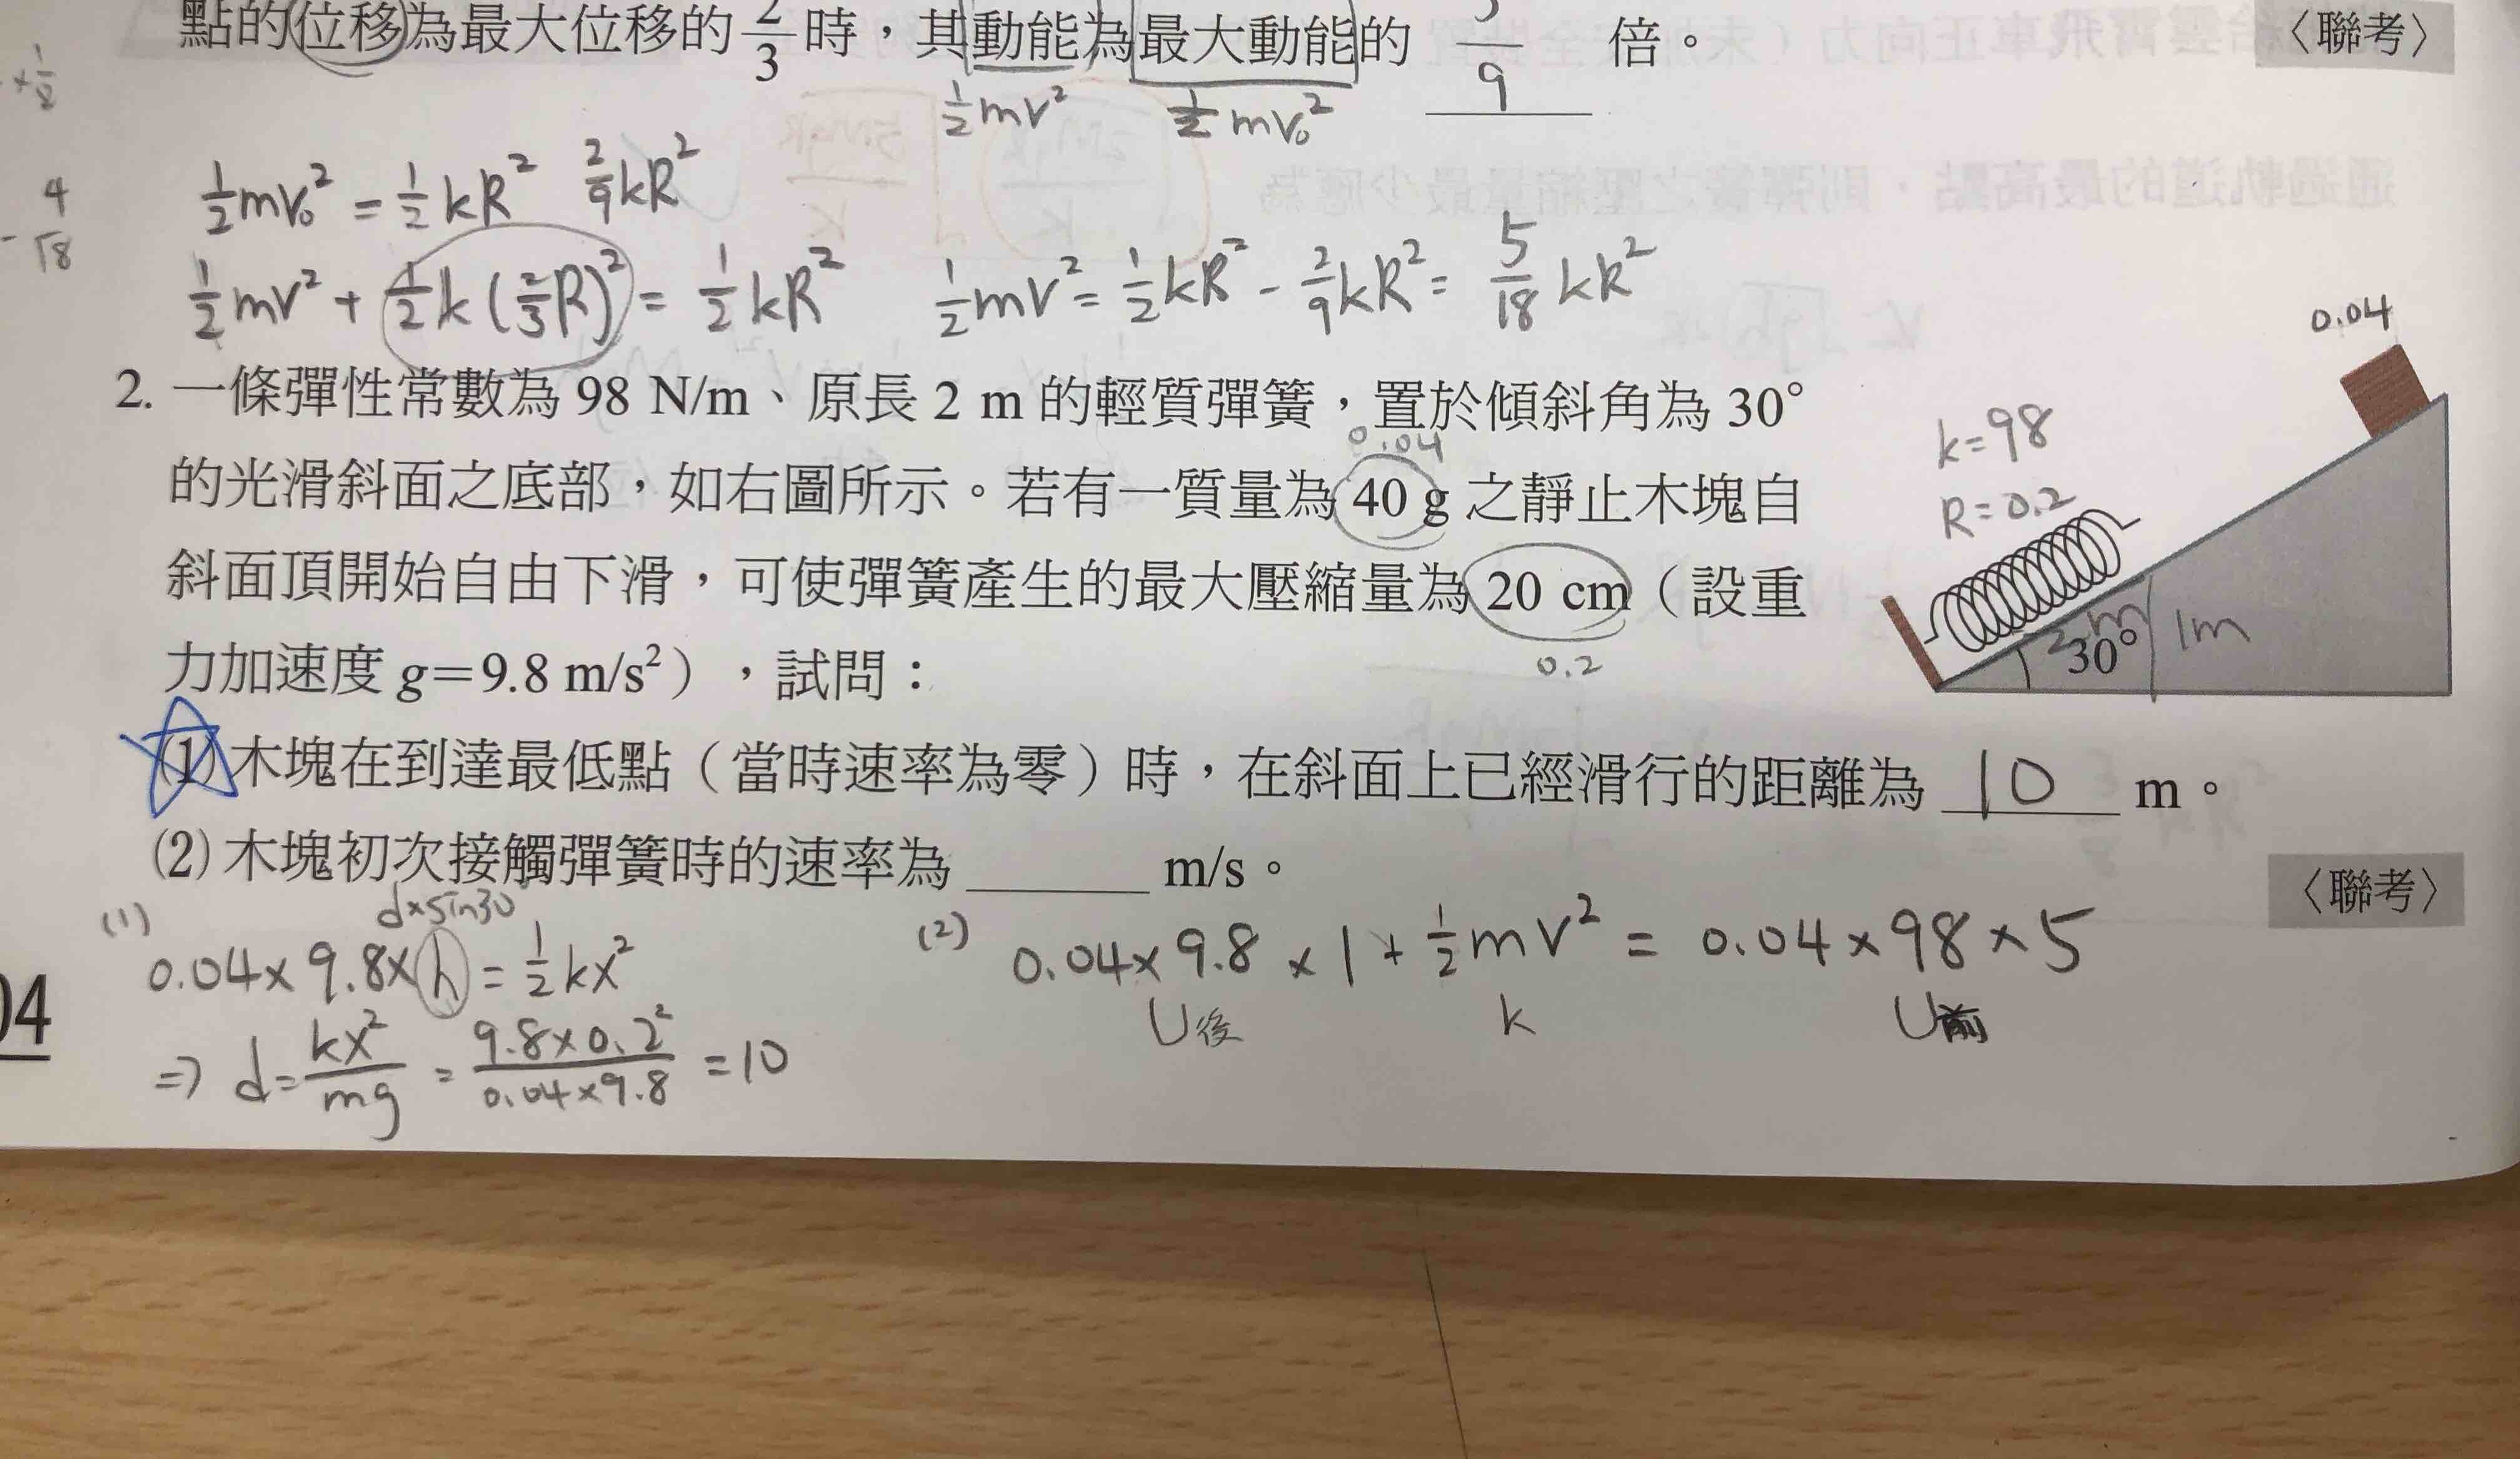 點的位移為最大位移的 2/3 時，其動能為最大動能的 5/9 倍。 〈聯考〉
1/2 mv² 1/2 mv₀²
× 1/2
4
- √8
1/2 mv₀² = 1/2 kR² 2/9 kR²
1/2 mv² + 1/2 k (2/3 R)² = 1/2 kR² 1/2 mv² = 1/2 kR² - 2/9 kR² = 5/18 kR²
2. 一條彈性常數為 98 N/m、原長 2 m 的輕質彈簧，置於傾斜角為 30°
0.04
的光滑斜面之底部，如右圖所示。若有一質量為 40 g 之靜止木塊自
斜面頂開始自由下滑，可使彈簧產生的最大壓縮量為 20 cm（設重
0.2
力加速度 g＝9.8 m/s²），試問：
0.04
k=98
R=0.2
2m 1m
30°
(1) 木塊在到達最低點（當時速率為零）時，在斜面上已經滑行的距離為 10 m。
(2) 木塊初次接觸彈簧時的速率為 ______ m/s。
〈聯考〉
(1) d×sin30°
0.04×9.8×h = 1/2 kx²
⇒ d = kx²/mg = 9.8×0.2²/0.04×9.8 = 10
(2) 0.04×9.8×1 + 1/2 mv² = 0.04×98×5
U後 k U前
04